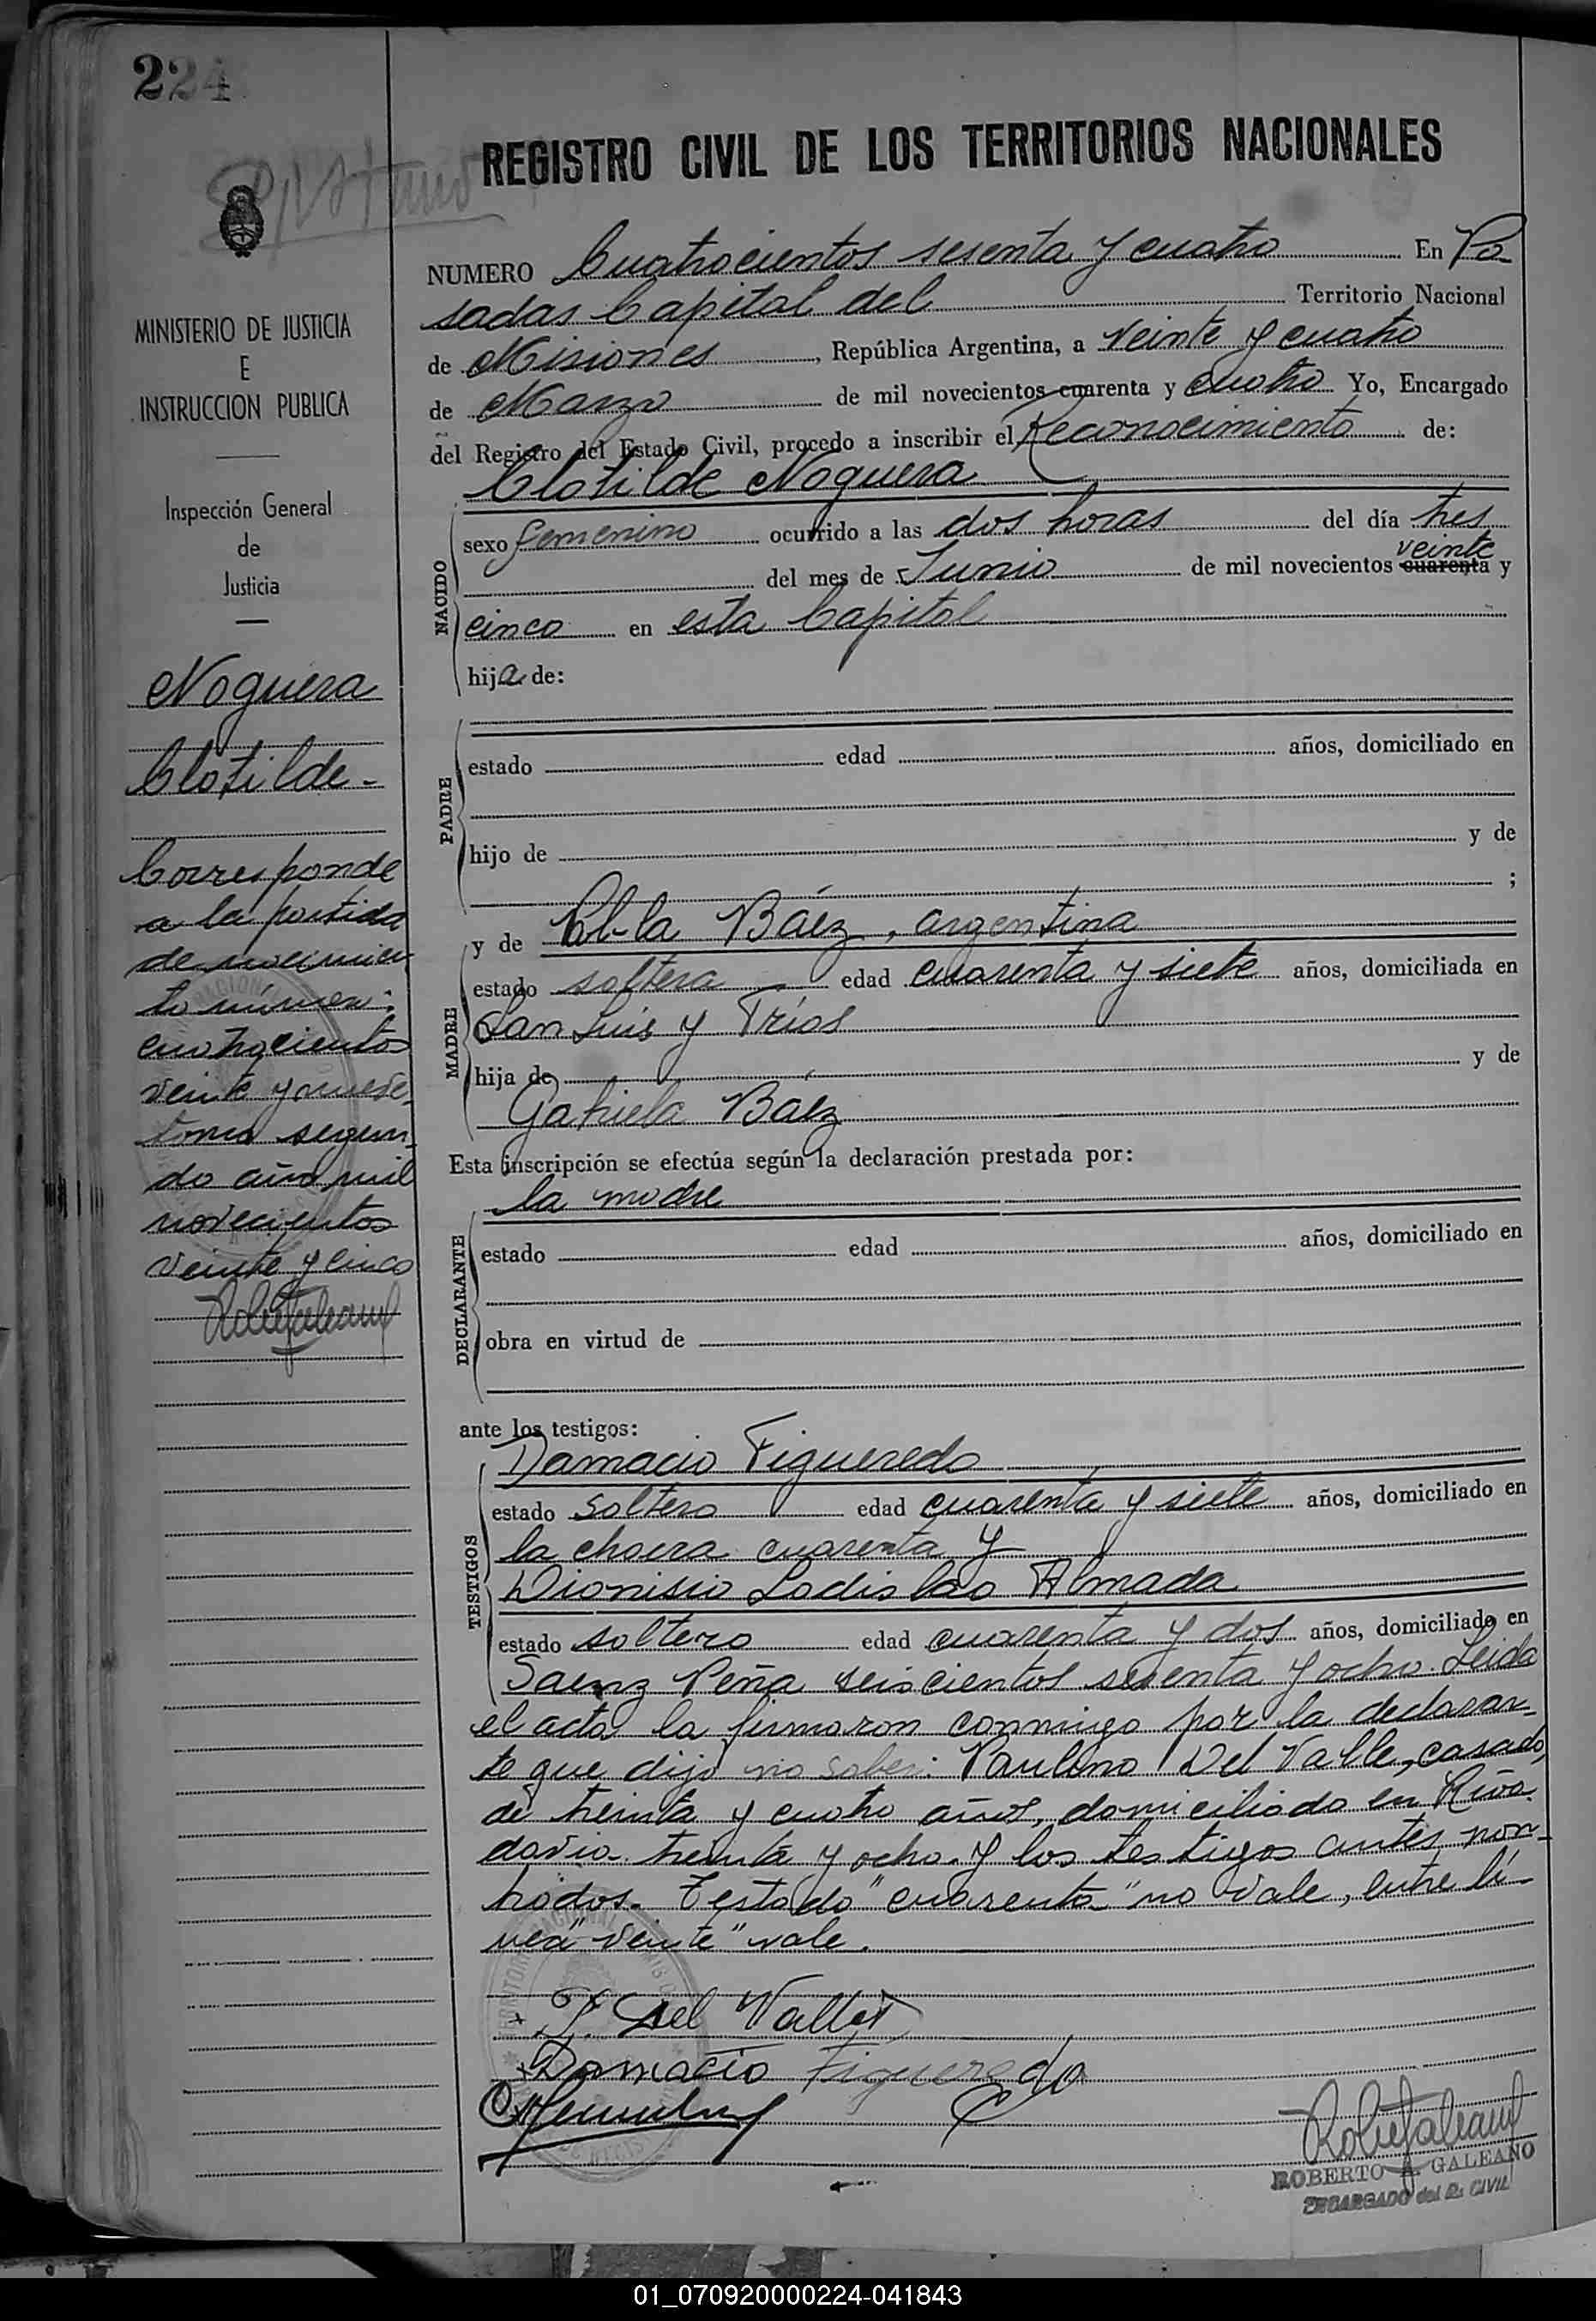 224
REGISTRO CIVIL DE LOS TERRITORIOS NACIONALES
MINISTERIO DE JUSTICIA
E
INSTRUCCION PUBLICA
Inspección General
de
Justicia
Noguera
Clotilde-
Corresponde
a la partida
de nacimien
to número:
cuatrocientos
veinte y nueve,
tomo segun-
do año mil
novecientos
veinte y cinco
NUMERO Cuatrocientos sesenta y cuatro En Po-
sadas Capital del Territorio Nacional
de Misiones, República Argentina, a veinte y cuatro
de Marzo de mil novecientos cuarenta y cuatro Yo, Encargado
del Registro del Estado Civil, procedo a inscribir el Reconocimiento de:
Clotilde Noguera
NACIDO
sexo femenino ocurrido a las dos horas del día tres
veinte
del mes de Junio de mil novecientos cuarenta y
cinco en esta Capital
hija de:
PADRE
estado edad años, domiciliado en
hijo de y de
;
MADRE
y de Báez, argentina
estado soltera edad cuarenta y siete años, domiciliada en
San Luis y Tríos
hija de y de
Gabriela Báez
Esta inscripción se efectúa según la declaración prestada por:
la madre
DECLARANTE
estado edad años, domiciliado en
obra en virtud de
ante los testigos:
TESTIGOS
Damacio Figueredo
estado soltero edad cuarenta y siete años, domiciliado en
la chacra cuarenta y
Dionisio Ladislao Almada
estado soltero edad cuarenta y dos años, domiciliado en
Saenz Peña seiscientos sesenta y ocho. Leida
el acta la firmaron conmigo por la declaran-
te que dijo no saber: Paulino Del Valle, casado,
de treinta y cuatro años, domiciliado en Riva-
davia treinta y ocho y los testigos antes nom-
brados. Testado "cuarenta" no vale, entre lí-
nea "veinte" vale.
P. del Valle
Damacio Figueredo
ROBERTO A. GALEANO
ENCARGADO del R. CIVIL
01_070920000224-041843